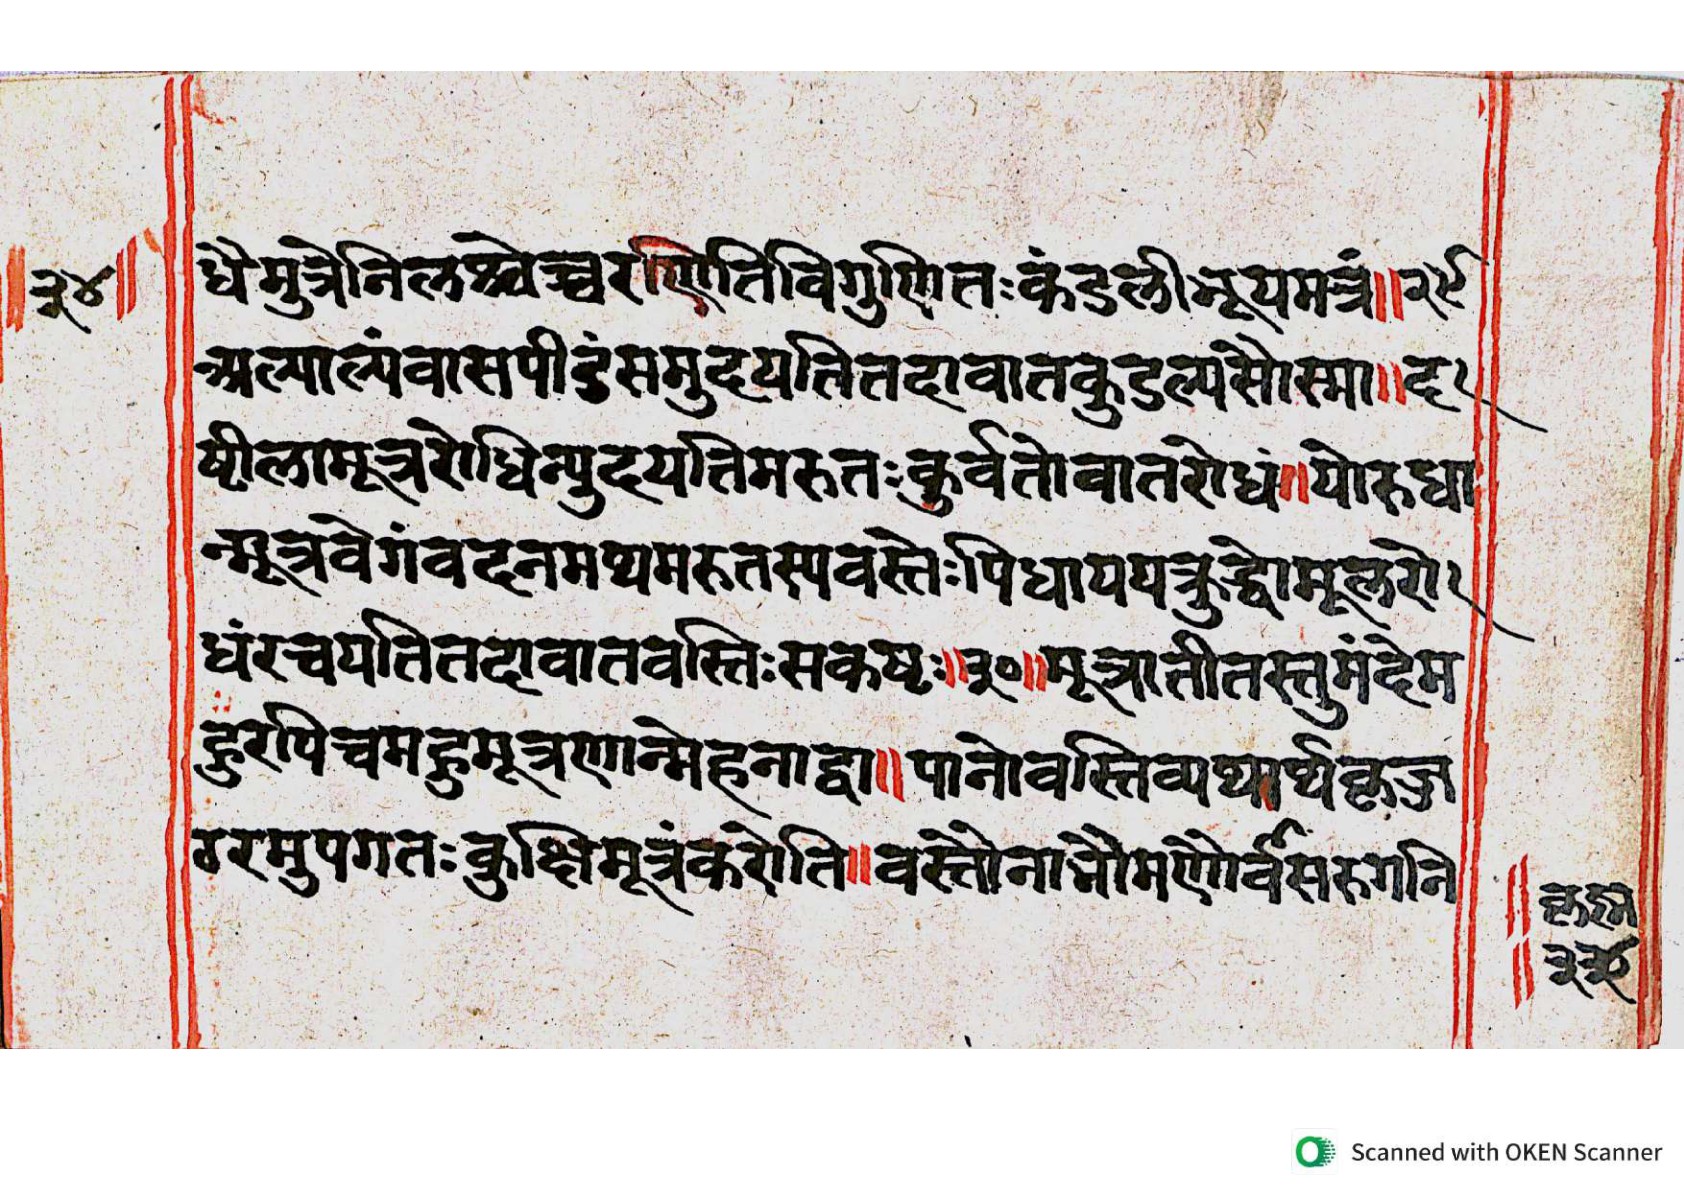 ३४
धैमुत्रेनिलश्चेच्चरणितिविगुणितःकंडलीभूयमत्रं॥२९
अल्पाल्पंवासपीडंसमुदयतितदावातकुडल्यसौस्मा॥द१
ष्टीलामूत्ररोधिन्युदयतिमरुतःकुर्वतोवातरोधं॥योरुधा
न्मूत्रवेगंवदनमथमरुतस्यवस्तेःपिधाययत्क्रुद्धोमूलरो१
धंरचयतितदावातवस्तिःसकष्टः॥३०॥मूत्रातीतस्तुमंदेम
हुरपिचमहुमूत्रणान्मेहनाद्वा॥पानोवस्तिव्यथार्थकृज्ज
ठरमुपगतःकुक्षिमूत्रंकरोति॥वस्तौनाभौमणौर्वसरुगनि
कृष्ण
३४
Scanned with OKEN Scanner